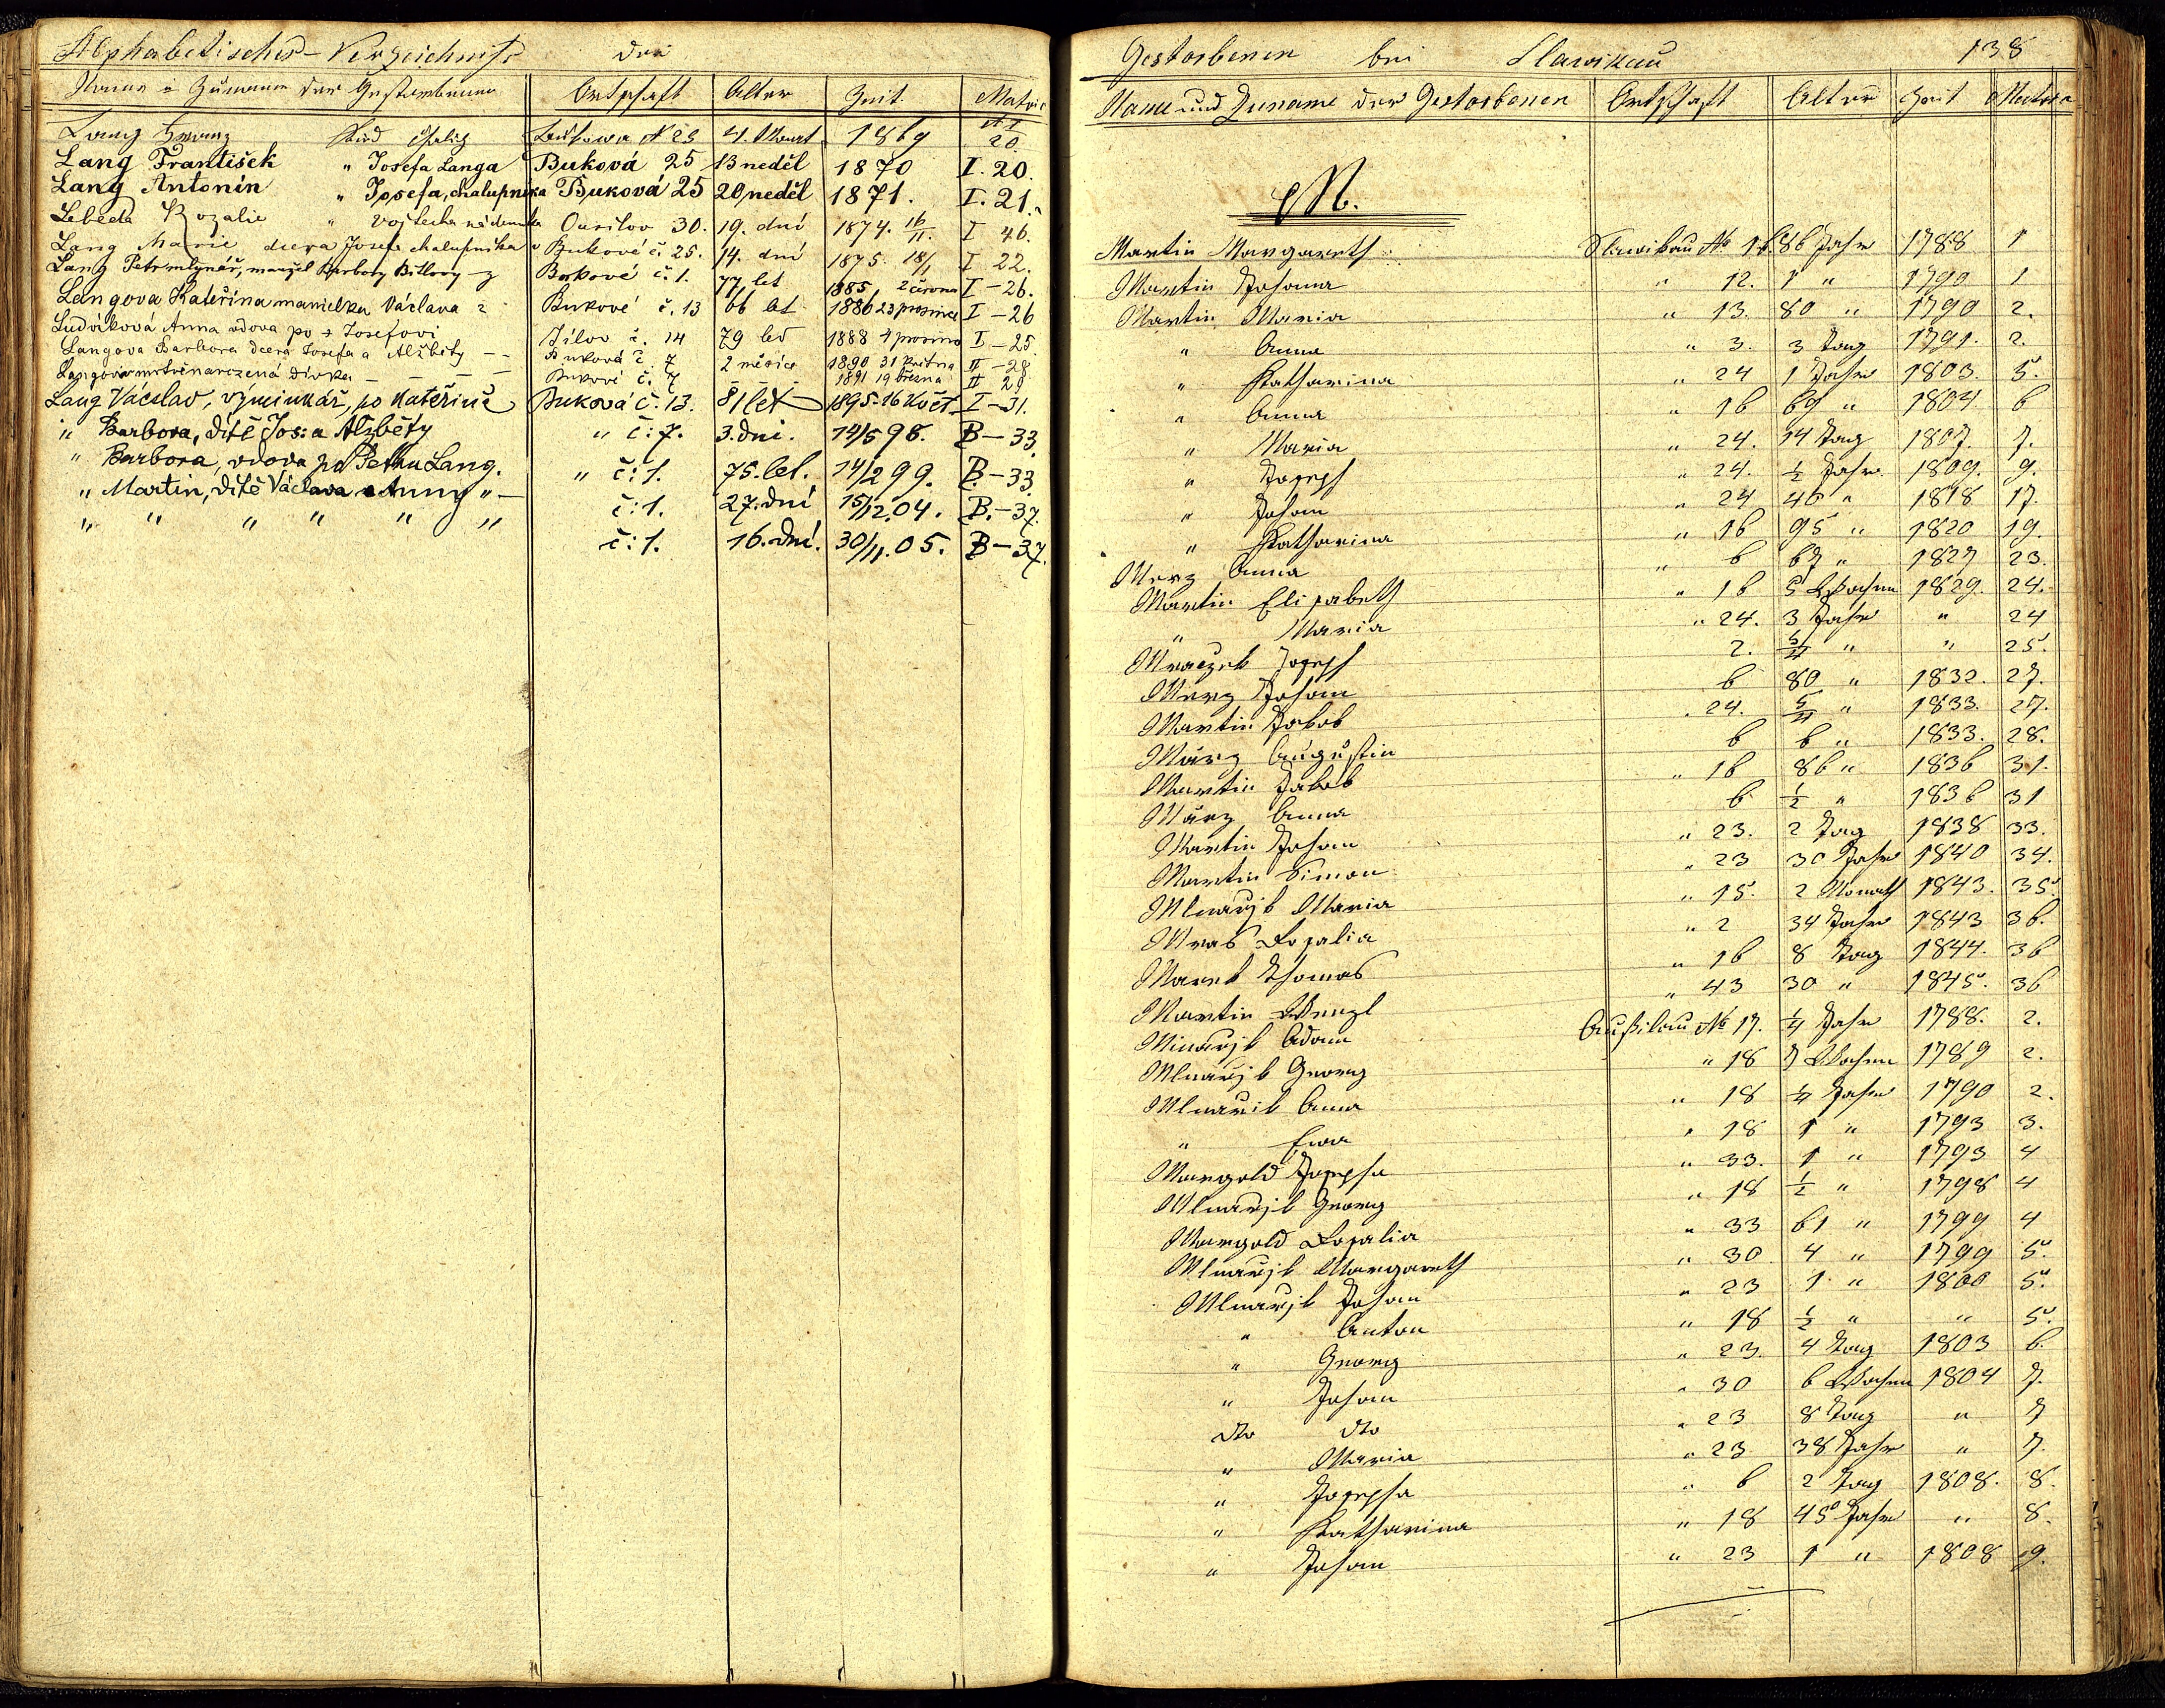 Alphabetisches-Verzeichniß der
Name u Zuname der Gestorbenen Ortschaft Alter Zeit Matric
Lang Franz Kind Bukowa N 25 4. Monat 1869 20.
Lang František " Josefa Langa Buková 25 13 neděl 1870 I. 20.
Lang Antonín " Josefa, chalupníka Buková 25 20 neděl 1871. I. 21.
Lebeda Rozalie " Vojtěcha nádeníka Ousilov 30. 19. dní 1874. 16/11. I 46.
Lang Marie dcera Josefa chalupníka v Bukové č. 25. 14. dní 1875. 18/1 I 22.
Lang Petr mlynář, manžel Barbory z Bukové č. 1. 77 let 1885, 2 června I - 26.
Langova Kateřina manželka Václava z Bukové č. 13 66 let 1886 23 prosince I - 26
Ludvíková Anna vdova po + Josefovi Jílov č. 14 79 let 1888 4 prosince I - 25
Langova Barbora dcera Josefa a Alžběty - - Buková č. 7 2 měsíce 1890 31 května II - 28
Langova mrtvěnarozená dívka - - - - Bukové č. 7 - - 1891 19 března II 29
Lang Václav, výminkář, po Kateřině Buková č. 13. 81 let 1895 - 16 Květ. I - 31.
" Barbora, dítě Jos: a Alžběty " č: 7. 3. dni. 14/5 98. B - 33.
" Barbora, vdova po Petru Lang. " č: 1. 75. let. 14/2 99. B - 33.
" Martin, dítě Václava a Anny " - č: 1. 27. dní 15/12. 04. B. - 37.
" " " " " " č: 1. 16. dní. 30/11. 05. B - 37.
Gestorbenen bei Slawikau 138
Name und Zuname der Gestorbenen Ortschaft Alter Zeit Matrica
M.
Martin Margareth Slawikau No 16. 86 Jahr 1788 1
Martin Johanna " 12. 1 " 1790 1
Martin Maria " 13. 80 " 1790 2.
" Anna " 3. 3 Tag 1791. 2.
" Katharina " 24 1 Jahr 1803. 5.
" Anna " 16 69 " 1804 6
" Maria " 24. 14 Tag 1807. 7.
" Joseph " 24. ½ Jahr 1809. 9.
" Johann " 24 40 " 1818 17.
" Katharina " 16 95 " 1820 19.
Merz Anna " 6 67 " 1827 23.
Martin Elisabeth " 16 5 Wochen 1829. 24.
" Maria " 24. 3 Jahr " 24
Mraczek Joseph 2. 5/4 " " 25.
Merz Johann 6 80 " 1832. 27.
Martin Jakob " 24. 5/4 " 1833. 27.
März Augustin 6 6 " 1833. 28.
Martin Jakob " 16 86 " 1836 31.
März Anna 6 ½ " 1836 31
Martin Johann " 23. 2 Tag 1838 33.
Martin Simon " 23 30 Jahr 1840 34.
Mlnarzik Maria " 15. 2 Monath 1843. 35.
Mras Rosalia " 2 34 Jahr 1843 36.
Marek Thomas " 16 8 Tag 1844. 36
Martin Wenzl " 43 30 " 1845. 36
Mlnarzik Adam Außilau No 17. ¼ Jahr 1788. 2.
Mlnarzik Georg " 18 7 Wochen 1789 2.
Mlnarzik Anna " 18 ¼ Jahr 1790 2.
" Ewa " 18 1 " 1793 3.
Margold Josepha " 33. 1 " 1793 4
Mlnarzik Georg " 18 ½ " 1798 4
Margold Rosalia " 33 61 " 1799 4
Mlnarzik Margareth " 30 4 " 1799 5.
Mlnarzik Johann " 23 1 " 1800 5.
" Anton " 18 ½ " " 5.
" Georg " 23. 4 Tag 1803 6.
" Johann " 30 6 Wochen 1804 7.
dto dto " 23 8 Tag " 7
" Maria " 23 38 Jahr " 7.
" Josepha " 6 2 Tag 1808. 8.
" Katharina " 18 45 Jahr " 8.
" Johann " 23 1 " 1808 9.